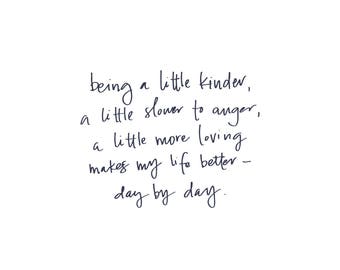 being a little kinder,
a little slower to anger,
a little more loving
makes my life better –
day by day.